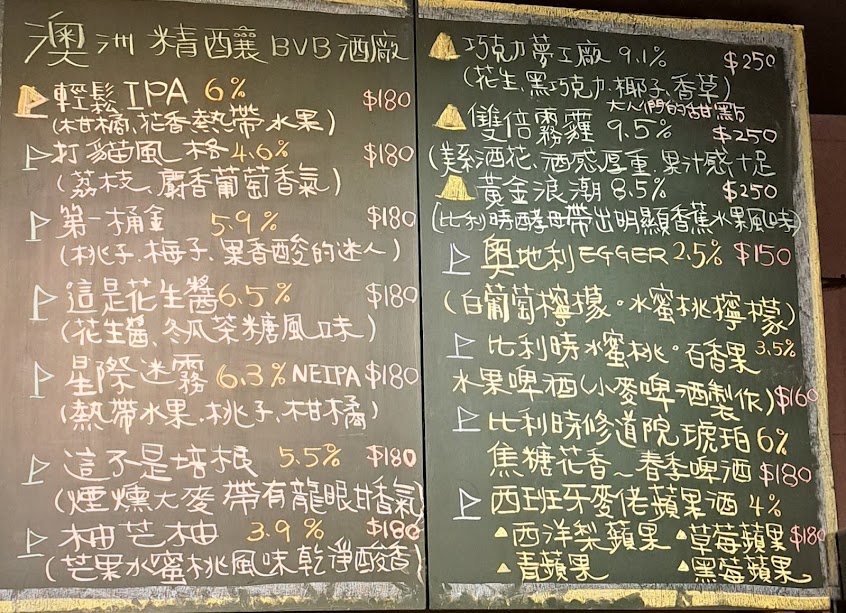 澳洲精釀BVB酒廠
輕鬆IPA 6% $180
(柑橘、花香熱帶水果)
打貓風格4.6% $180
(荔枝、麝香葡萄香氣)
第一桶金 5.9% $180
(桃子、梅子、果香酸的迷人)
這是花生醬6.5% $180
(花生醬、冬瓜茶糖風味)
星際迷霧6.3% NEIPA $180
(熱帶水果、桃子、柑橘)
這不是培根 5.5% $180
(煙燻大麥帶有龍眼甘香氣)
柚芒柚 3.9% $180
(芒果水蜜桃風味乾淨酸香)
巧克力夢工廠 9.1% $250
(花生、黑巧克力、椰子、香草)
大人們的甜點
雙倍霧霾 9.5% $250
(美系酒花、酒感厚重、果汁感十足
黃金浪潮 8.5% $250
(比利時酵母帶出明顯香蕉水果風味)
奧地利EGGER 2.5% $150
(白葡萄檸檬。水蜜桃檸檬)
比利時水蜜桃。百香果 3.5%
水果啤酒(小麥啤酒製作) $160
比利時修道院 琥珀 6%
焦糖花香~春季啤酒 $180
西班牙麥佬蘋果酒 4%
西洋梨蘋果 草莓蘋果 $180
青蘋果 黑莓蘋果